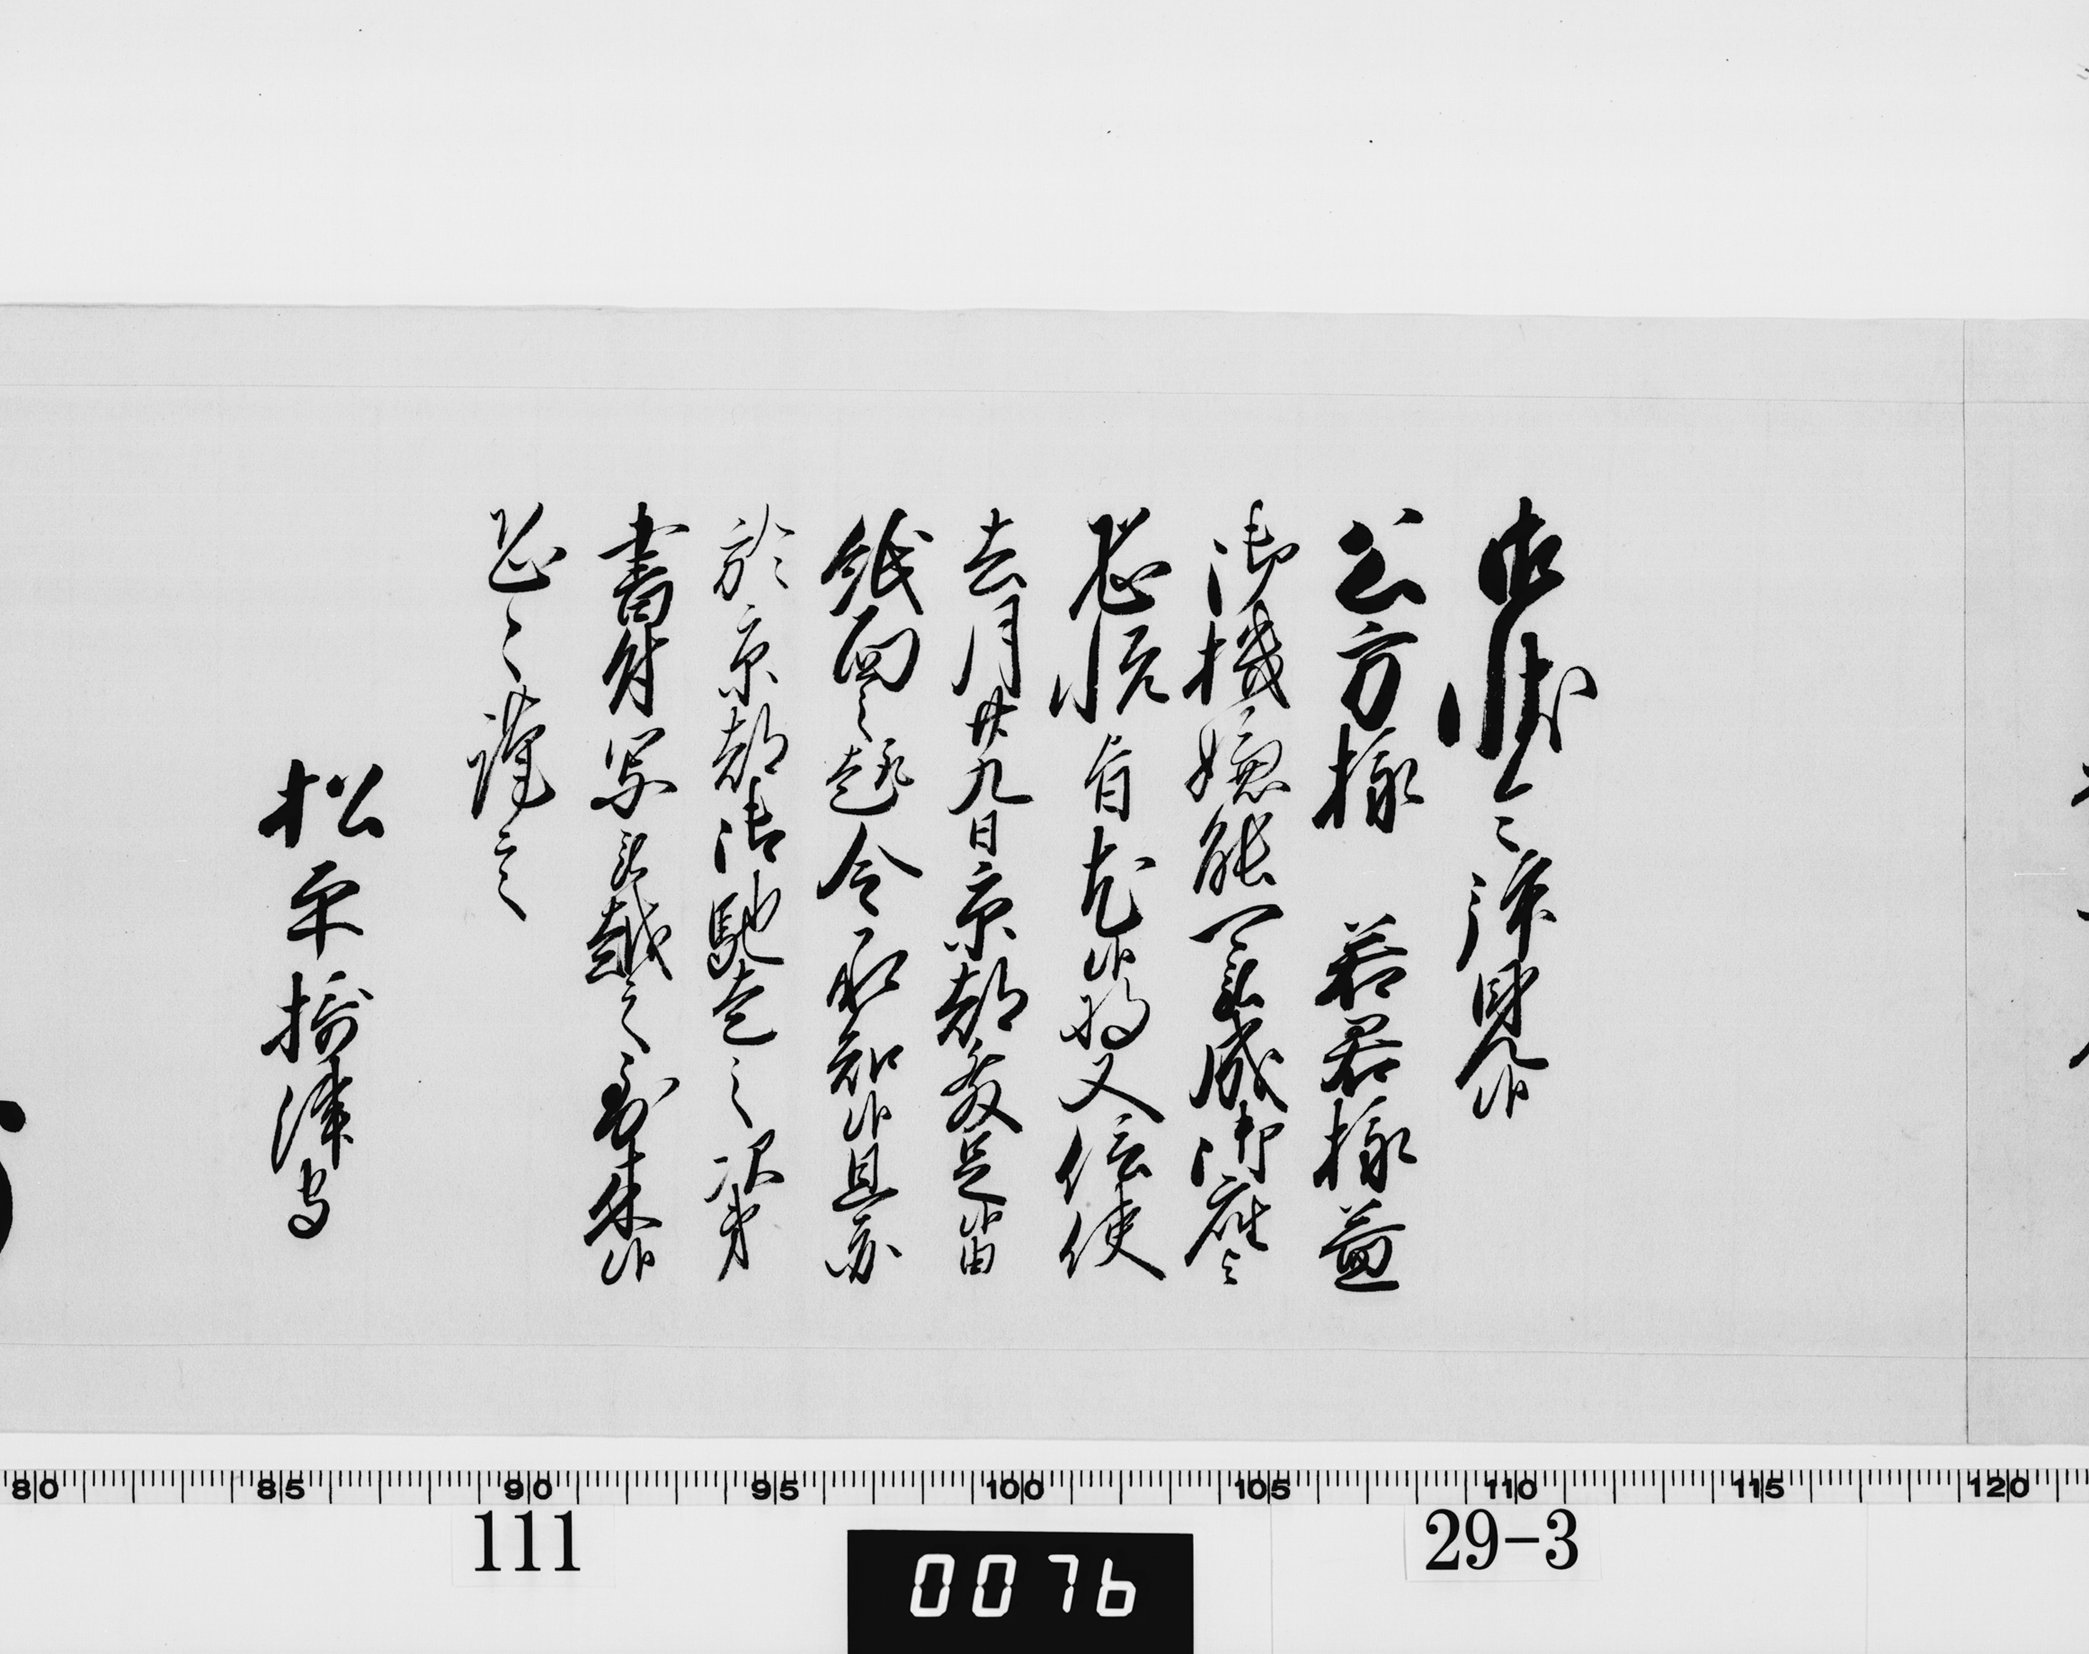 御状令拝見候
公方様 若君様益
御機嫌能被成御座
恐悦旨尤候将又信使
去月廿九日京都発足候由
紙面之趣令承知候且亦
於京都御馳走之次第
書付写被越之到来候
恐々謹言
松平摂津守
80 85 90 95 100 105 110 115 120
111
0076
29-3